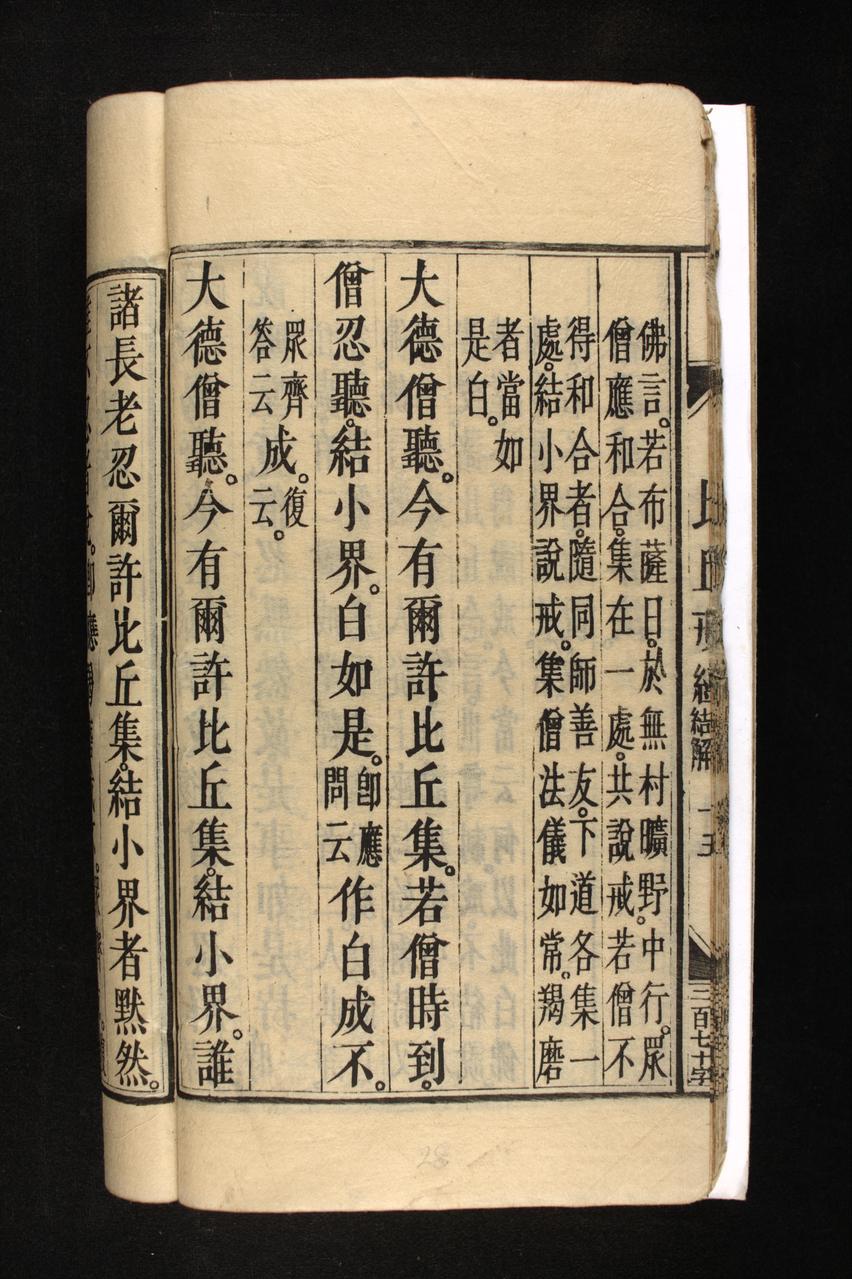 比丘戒經結解 十五 三百七十字
佛言。若布薩日。於無村曠野。中行。眾
僧應和合。集在一處。共說戒。若僧不
得和合者。隨同師善友。下道各集一
處。結小界說戒。集僧法儀如常。羯磨
者當如
是白。
大德僧聽。今有爾許比丘集。若僧時到。
僧忍聽。結小界。白如是。卽應問云作白成不。
眾齊答云成。復云。
大德僧聽。今有爾許比丘集。結小界。誰
諸長老忍爾許比丘集。結小界者默然。